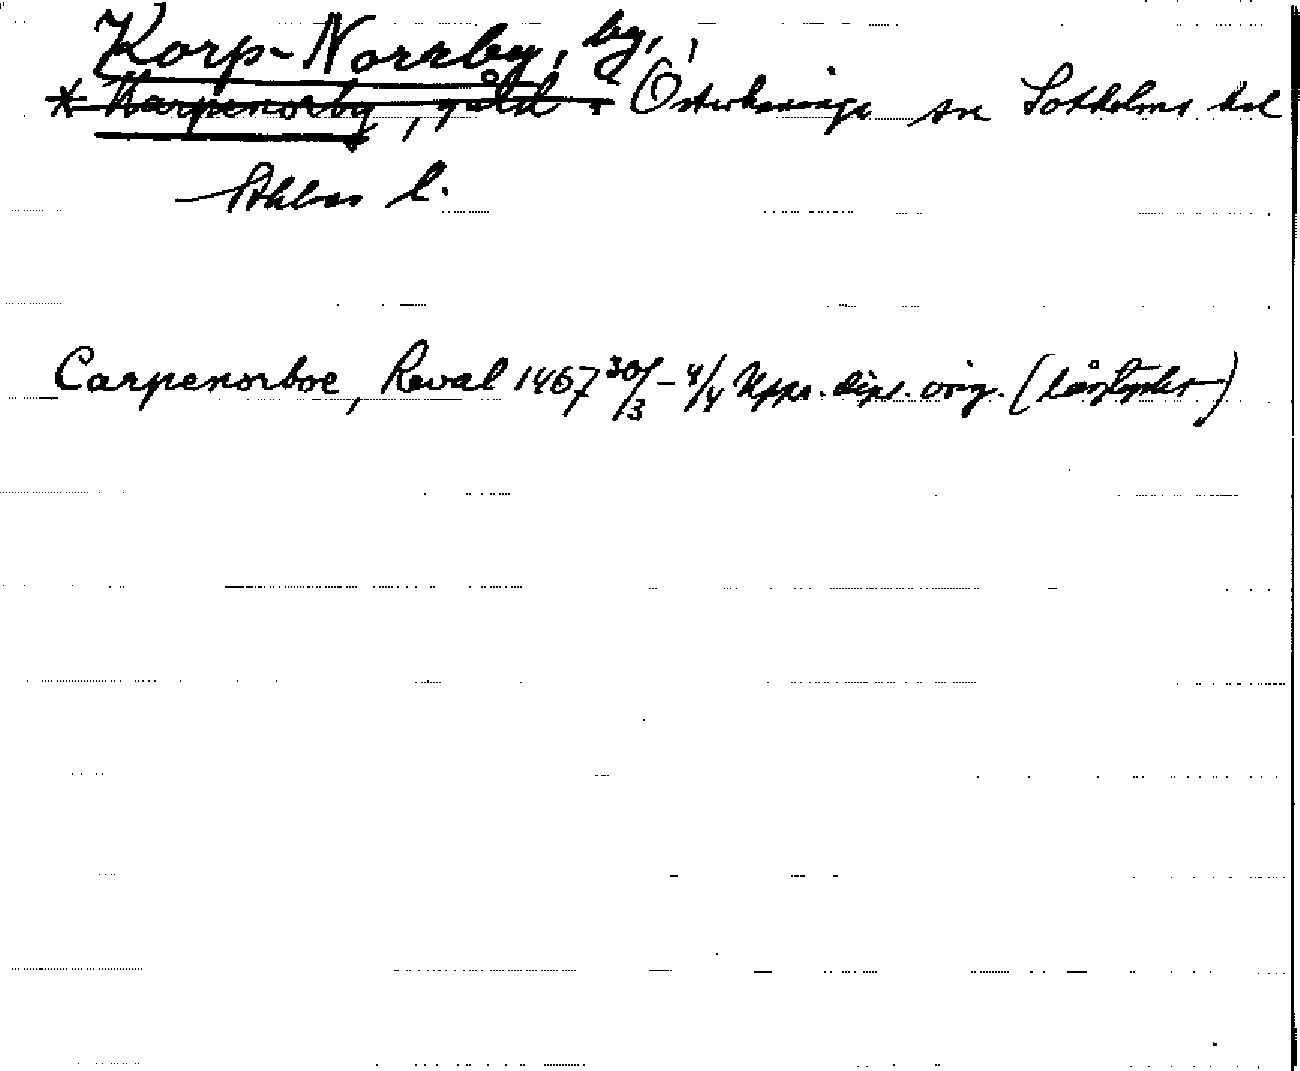 Korp-Norrby, by,
* Karpenorby, gård i Österhaninge sn Sotholms hd
Sthlms l.
Carpenorboe, Reval 1467 30/3 - 4/4 Upps. dipl. orig. (lågtyska)